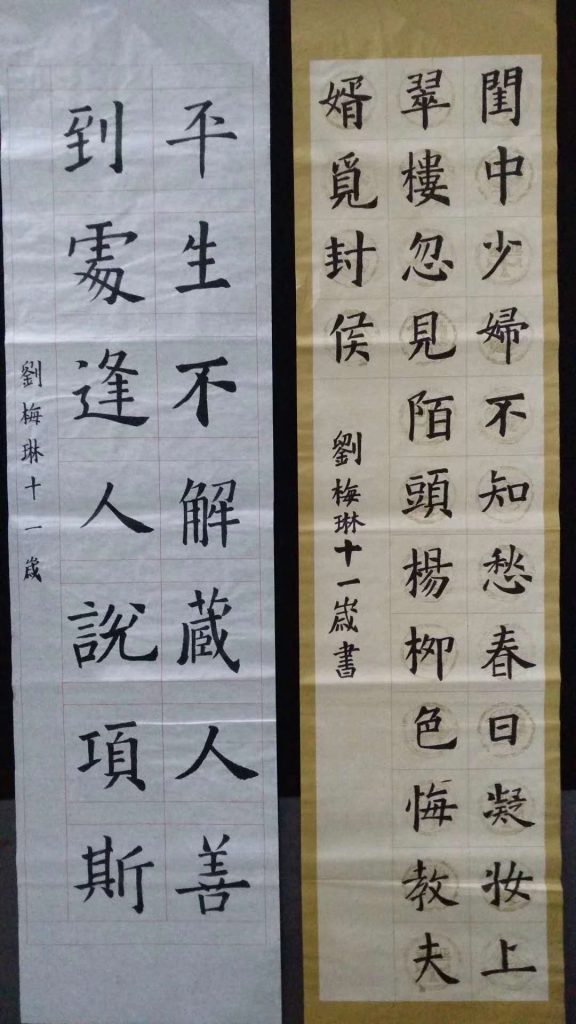 閨中少婦不知愁春日凝妝上
翠樓忽見陌頭楊柳色悔教夫
婿覓封侯
劉梅琳十一歲書
平生不解藏人善
到處逢人說項斯
劉梅琳十一歲